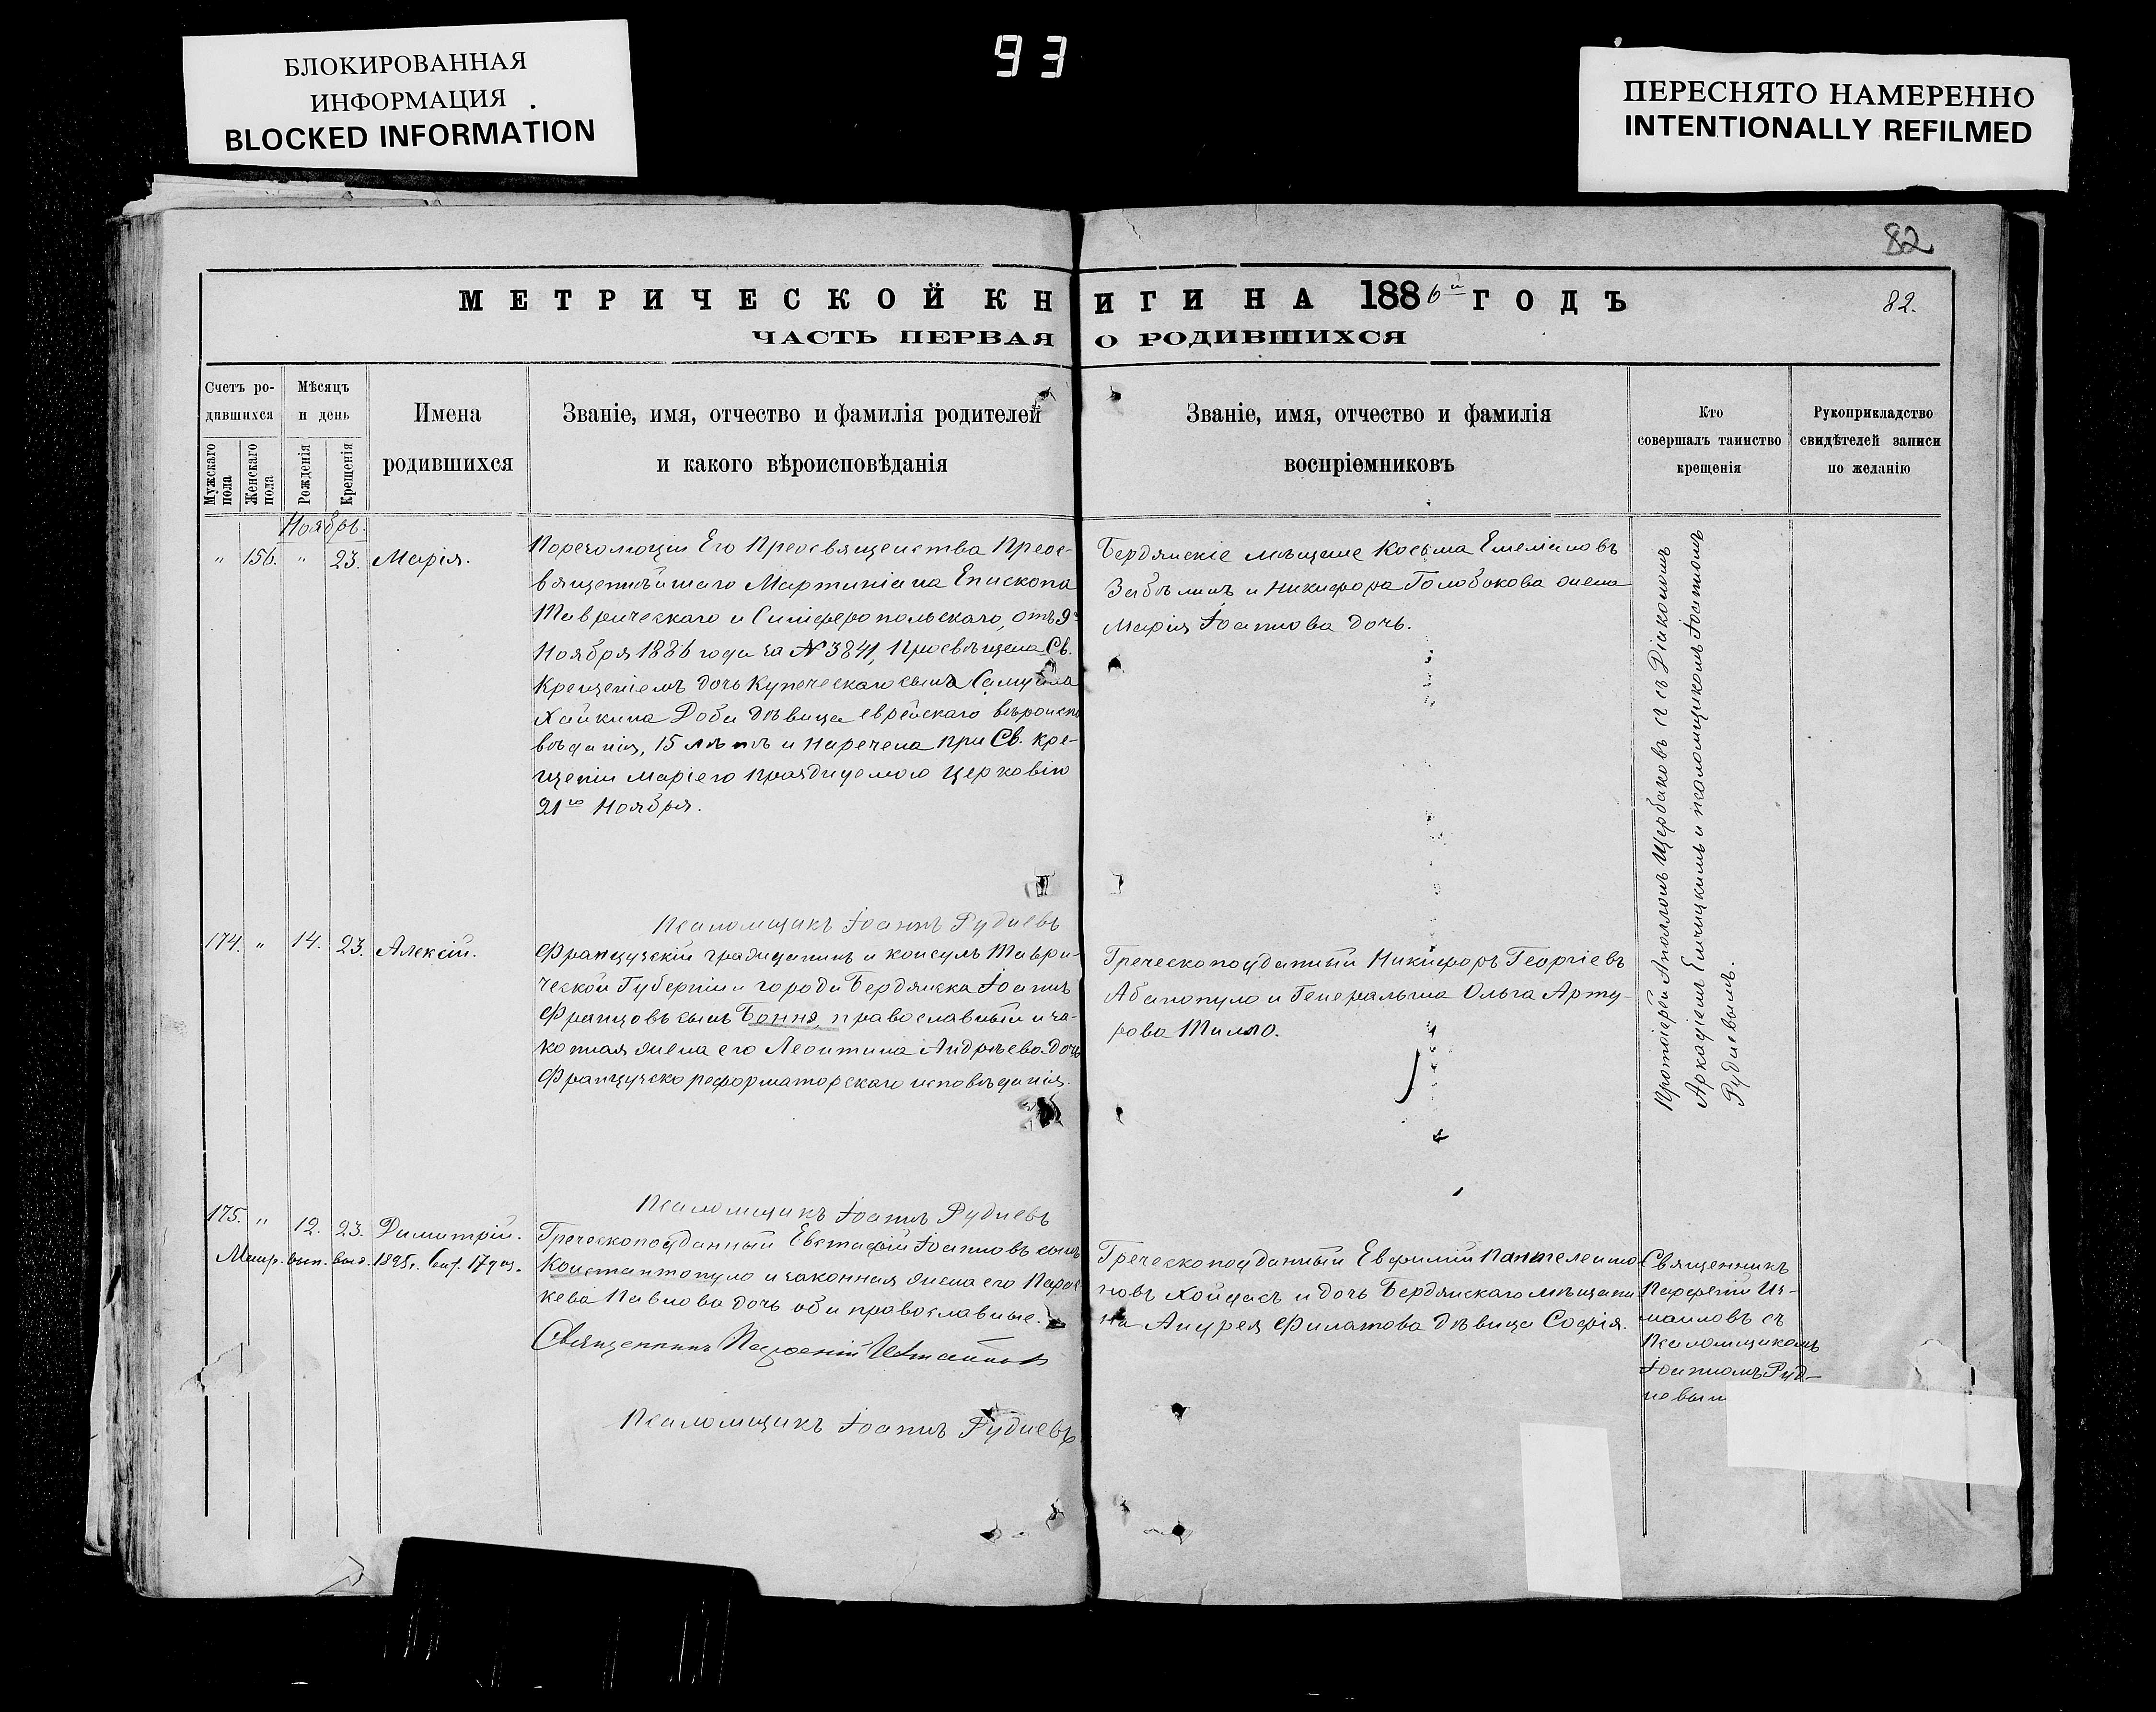 БЛОКИРОВАННАЯ
ИНФОРМАЦИЯ
BLOCKED INFORMATION
93
ПЕРЕСНЯТО НАМЕРЕННО
INTENTIONALLY REFILMED
82
МЕТРИЧЕСКОЙ КНИГИ НА 1886й ГОДЪ
82.
ЧАСТЬ ПЕРВАЯ О РОДИВШИХСЯ
Счетъ ро-
дившихся
Мужскаго
пола
Женскаго
пола
Мѣсяцъ
и день
Рожденія
Крещенія
Имена
родившихся
Званіе, имя, отчество и фамилія родителей
и какого вѣроисповѣданія
Званіе, имя, отчество и фамилія
воспріемниковъ
Кто
совершалъ таинство
крещенія
Рукоприкладство
свидѣтелей записи
по желанію
Ноябрь.
" 156. " 23. Марія.
По резолюціи Его Преосвященства Преос-
вященнѣйшаго Мартиніана Епископа
Таврическаго и Симферопольскаго, отъ 9го
Ноября 1886 года за № 3841, просвѣщена Св.
Крещеніемъ дочь Купеческаго сына Самуила
Хайкина Доба дѣвица еврейскаго вѣроиспо
вѣданія, 15 лѣтъ и наречена при Св. кре-
щеніи Маріею празднуемою Церковію
21го Ноября.
Псаломщикъ Іоаннъ Рудневъ
Бердянскіе мѣщане Косьма Емеліановъ
Забѣлинъ и Никифора Голобокова жена
Марія Іоаннова дочь.
Протоіерей Аполлонъ Щербаковъ съ Діакономъ
Аркадіемъ Енчицкимъ и псаломщикомъ Іоанномъ
Рудневымъ.
174. " 14. 23. Алексій.
Французскій гражданинъ и консулъ Таври-
ческой Губерніи города Бердянска Іоаннъ
Францовъ сынъ Боннэ, православный и за-
конная жена его Леонтина Андреева дочь
Французско реформаторскаго исповѣданія.
Псаломщикъ Іоаннъ Рудневъ
Греческоподданный Никифоръ Георгіевъ
Абанопуло и Генеральша Ольга Арту-
рова Тилло.
175. " 12. 23. Димитрій.
Метр. вып. выд. 1895г. Сен. 17 дня.
Греческоподданный Евстафій Іоанновъ сынъ
Константопуло и законная жена его Парас
кева Павлова дочь оба православные.
Священникъ Парфеній Измаиловъ
Псаломщикъ Іоаннъ Рудневъ
Греческоподданный Евфимій Пантелеимо
новъ Хойдасъ и дочь Бердянскаго мѣщани
на Андрея Филатова дѣвица Софія.
Священникъ
Парфеній Из-
маиловъ съ
Псаломщикомъ
Іоанномъ Руд-
невым